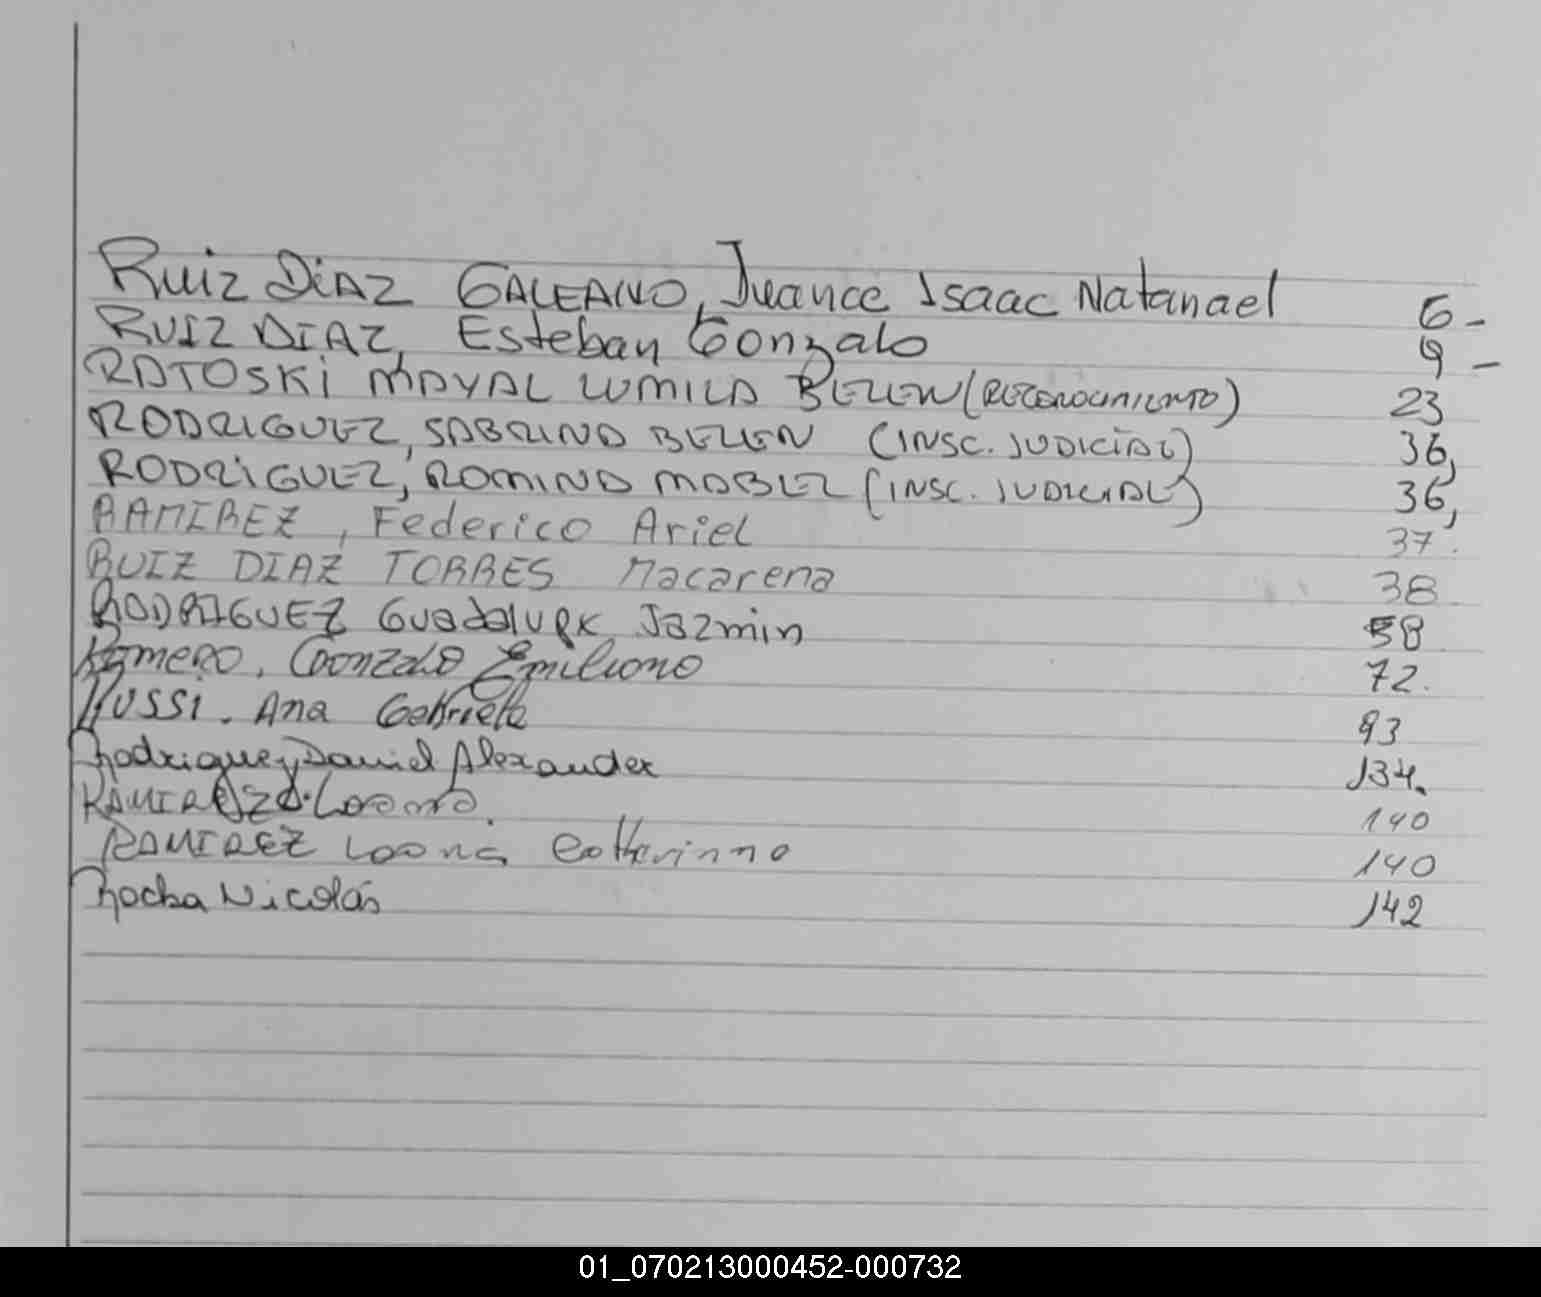 Ruiz Diaz GALEANO, Juance Isaac Natanael 6-
RUIZ DIAZ, Esteban Gonzalo 9-
RATOSKI MAYAL LUMILA BELEN (RECONOCIMIENTO) 23
RODRIGUEZ, SABRINA BELEN (INSC. JUDICIAL) 36,
RODRIGUEZ, ROMINA MABEL (INSC. JUDICIAL) 36,
RAMIREZ, Federico Ariel 37.
RUIZ DIAZ TORRES Macarena 38
RODRIGUEZ Guadalupe Jazmin 58
Romero, Gonzalo Emiliano 72.
RUSSi. Ana Gabriela 93
Rodriguez Daniel Alexander 134.
RAMIREZ 140
RAMIREZ 140
Rocha Nicolás 142
01_070213000452-000732